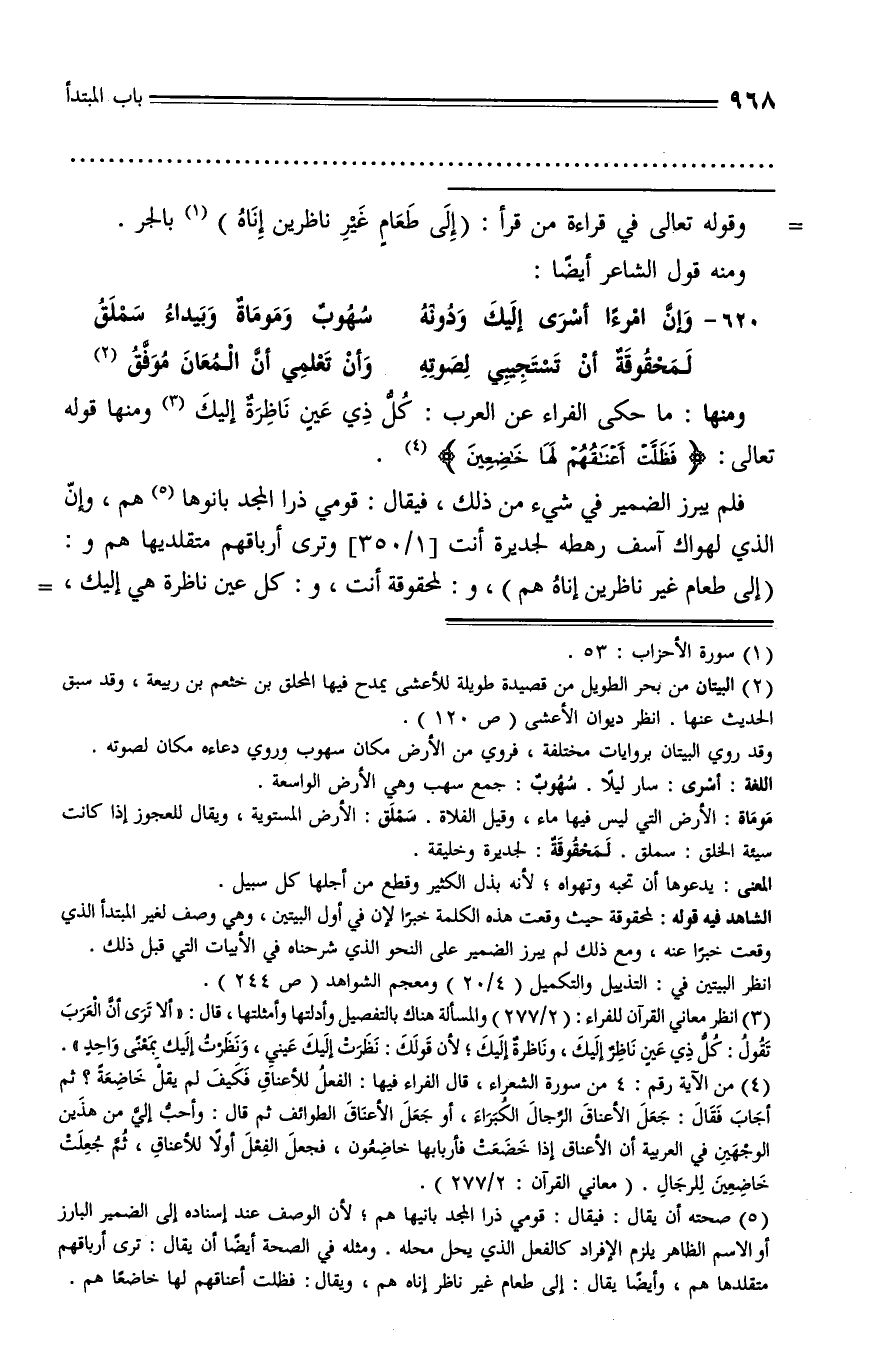 ٩٦٨ باب المبتدأ
........................................................................
= وقوله تعالى في قراءة من قرأ : (إِلَى طَعَامٍ غَيْرِ ناظرين إِنَاهُ ) (١) بالجر .
ومنه قول الشاعر أيضًا :
٦٢٠- وَإِنَّ امْرءًا أسْرَى إلَيكَ وَدُونَهُ سُهُوبٌ وَمَومَاةٌ وَبَيداءُ سَمْلَقُ
لَـمَحْقُوقَةٌ أنْ تَسْتَجِيبِي لِصَوتِهِ وَأنْ تَعْلمِي أنَّ الْـمُعَانَ مُوَفَّقُ (٢)
ومنها : ما حكى الفراء عن العرب : كُلُّ ذِي عَينٍ نَاظِرَةٌ إليكَ (٣) ومنها قوله
تعالى : ﴿ فَظَلَّتْ أَعْنَٰقُهُمْ لَهَا خَٰضِعِينَ ﴾ (٤) .
فلم يبرز الضمير في شيء من ذلك ، فيقال : قومي ذرا المجد بانوها (٥) هم ، وإنّ
الذي لهواك آسف رهطه لجديرة أنت [٣٥٠/١] وترى أرباقهم متقلديها هم و :
(إلى طعام غير ناظرين إناهُ هم ) ، و : لمحقوقة أنت ، و : كل عين ناظرة هي إليك ، =
(١) سورة الأحزاب : ٥٣ .
(٢) البيتان من بحر الطويل من قصيدة طويلة للأعشى يمدح فيها المحلق بن خثعم بن ربيعة ، وقد سبق
الحديث عنها . انظر ديوان الأعشى ( ص ١٢٠ ) .
وقد روي البيتان بروايات مختلفة ، فروي من الأرض مكان سهوب وروي دعاءه مكان لصوته .
اللغة : أسْرى : سار ليلًا . سُهُوبٌ : جمع سهب وهي الأرض الواسعة .
مَومَاة : الأرض التي ليس فيها ماء ، وقيل الفلاة . سَمْلَق : الأرض المستوية ، ويقال للعجوز إذا كانت
سيئة الخلق : سملق . لَـمَحْقُوقَةٌ : لجديرة وخليقة .
المعنى : يدعوها أن تحبه وتهواه ؛ لأنه بذل الكثير وقطع من أجلها كل سبيل .
الشاهد فيه قوله : لمحقوقة حيث وقعت هذه الكلمة خبرًا لإن في أول البيتين ، وهي وصف لغير المبتدأ الذي
وقعت خبرًا عنه ، ومع ذلك لم يبرز الضمير على النحو الذي شرحناه في الأبيات التي قبل ذلك .
انظر البيتين في : التذييل والتكميل ( ٢٠/٤ ) ومعجم الشواهد ( ص ٢٤٤ ) .
(٣) انظر معاني القرآن للفراء : ( ٢٧٧/٢ ) والمسألة هناك بالتفصيل وأدلتها وأمثلتها ، قال : « ألا تَرَى أنَّ الْعَرَبَ
تَقُولُ : كُلُّ ذِي عَينٍ نَاظِرٌ إلَيكَ ، ونَاظرةٌ إلَيكَ ؛ لأن قَولَكَ : نَظَرَتْ إلَيكَ عَيني ، وَنَظَرْتُ إلَيك بِمَعْنًى وَاحِدٍ » .
(٤) من الآية رقم : ٤ من سورة الشعراء ، قال الفراء فيها : الفعلُ للأعناقِ فَكَيفَ لم يقلْ خَاضِعَةً ؟ ثم
أجَابَ فَقَالَ : جَعَلَ الأعناقَ الرِّجالَ الكُبَرَاءَ ، أو جَعَلَ الأعنَاقَ الطوائف ثم قال : وأحبُّ إليَّ من هذَين
الوجْهَينِ في العربية أن الأعناق إذا خَضَعَتْ فأربابها خاضِعُون ، فجعلَ الفِعْلَ أولًا للأعناقِ ، ثُمَّ جُعِلَتْ
خَاضِعِينَ لِلرجَالِ . ( معاني القرآن : ٢٧٧/٢ ) .
(٥) صحته أن يقال : فيقال : قومي ذرا المجد بانيها هم ؛ لأن الوصف عند إسناده إلى الضمير البارز
أو الاسم الظاهر يلزم الإفراد كالفعل الذي يحل محله . ومثله في الصحة أيضًا أن يقال : ترى أرباقهم
متقلدها هم ، وأيضًا يقال : إلى طعام غير ناظر إناه هم ، ويقال : فظلت أعناقهم لها خاضعًا هم .